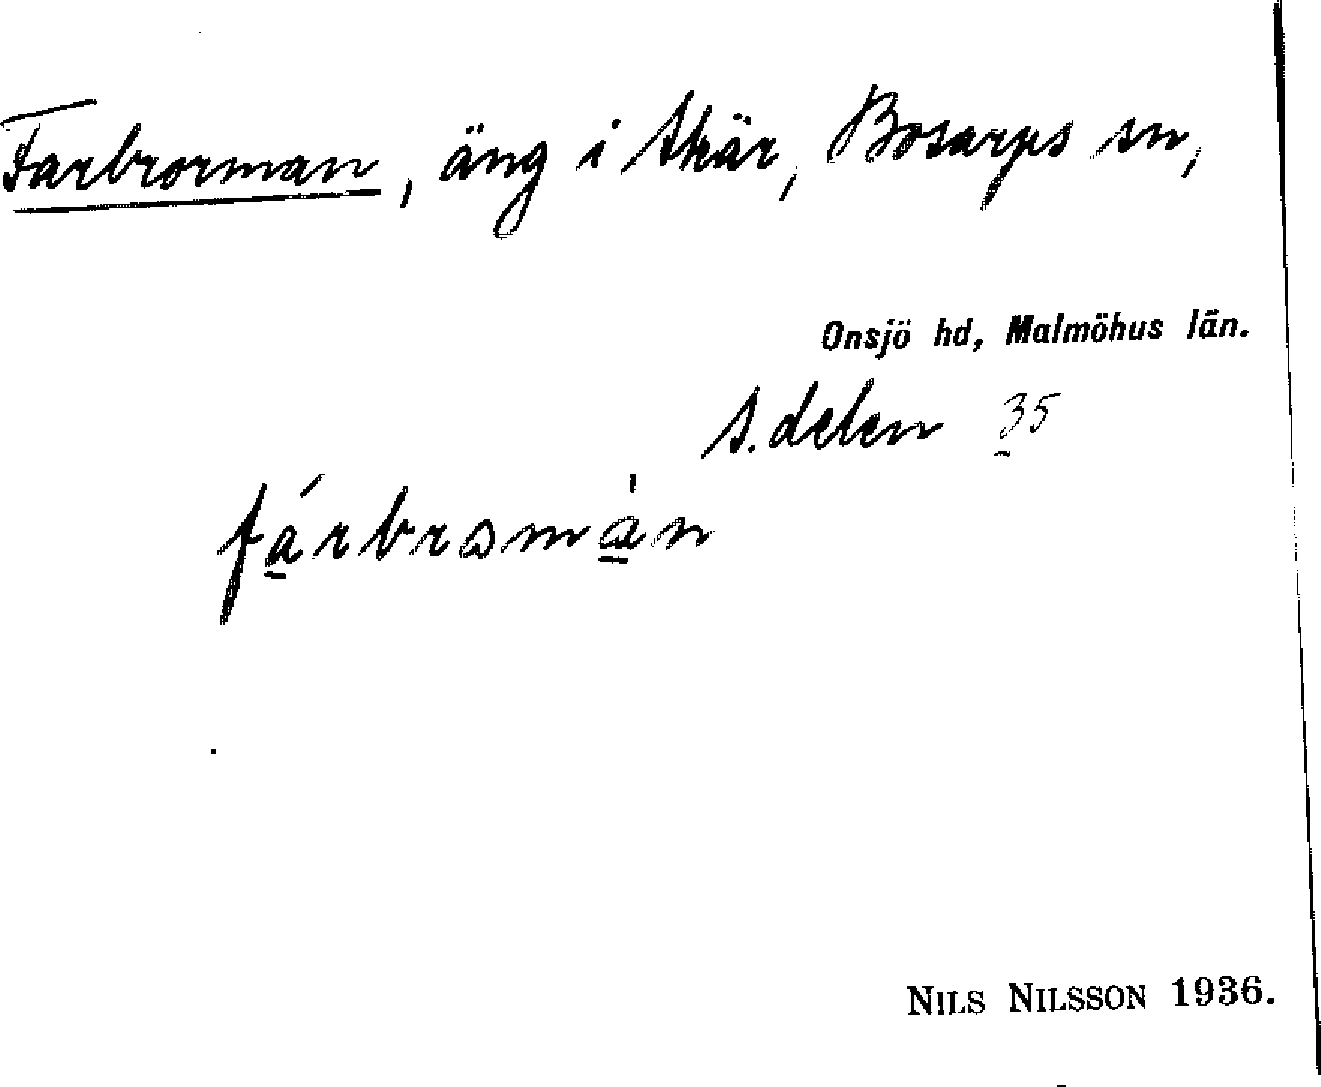 Farbrorman, äng i Skär, Bosarps sn,
Onsjö hd, Malmöhus län.
S. delen 35
fárbromàn
NILS NILSSON 1936.